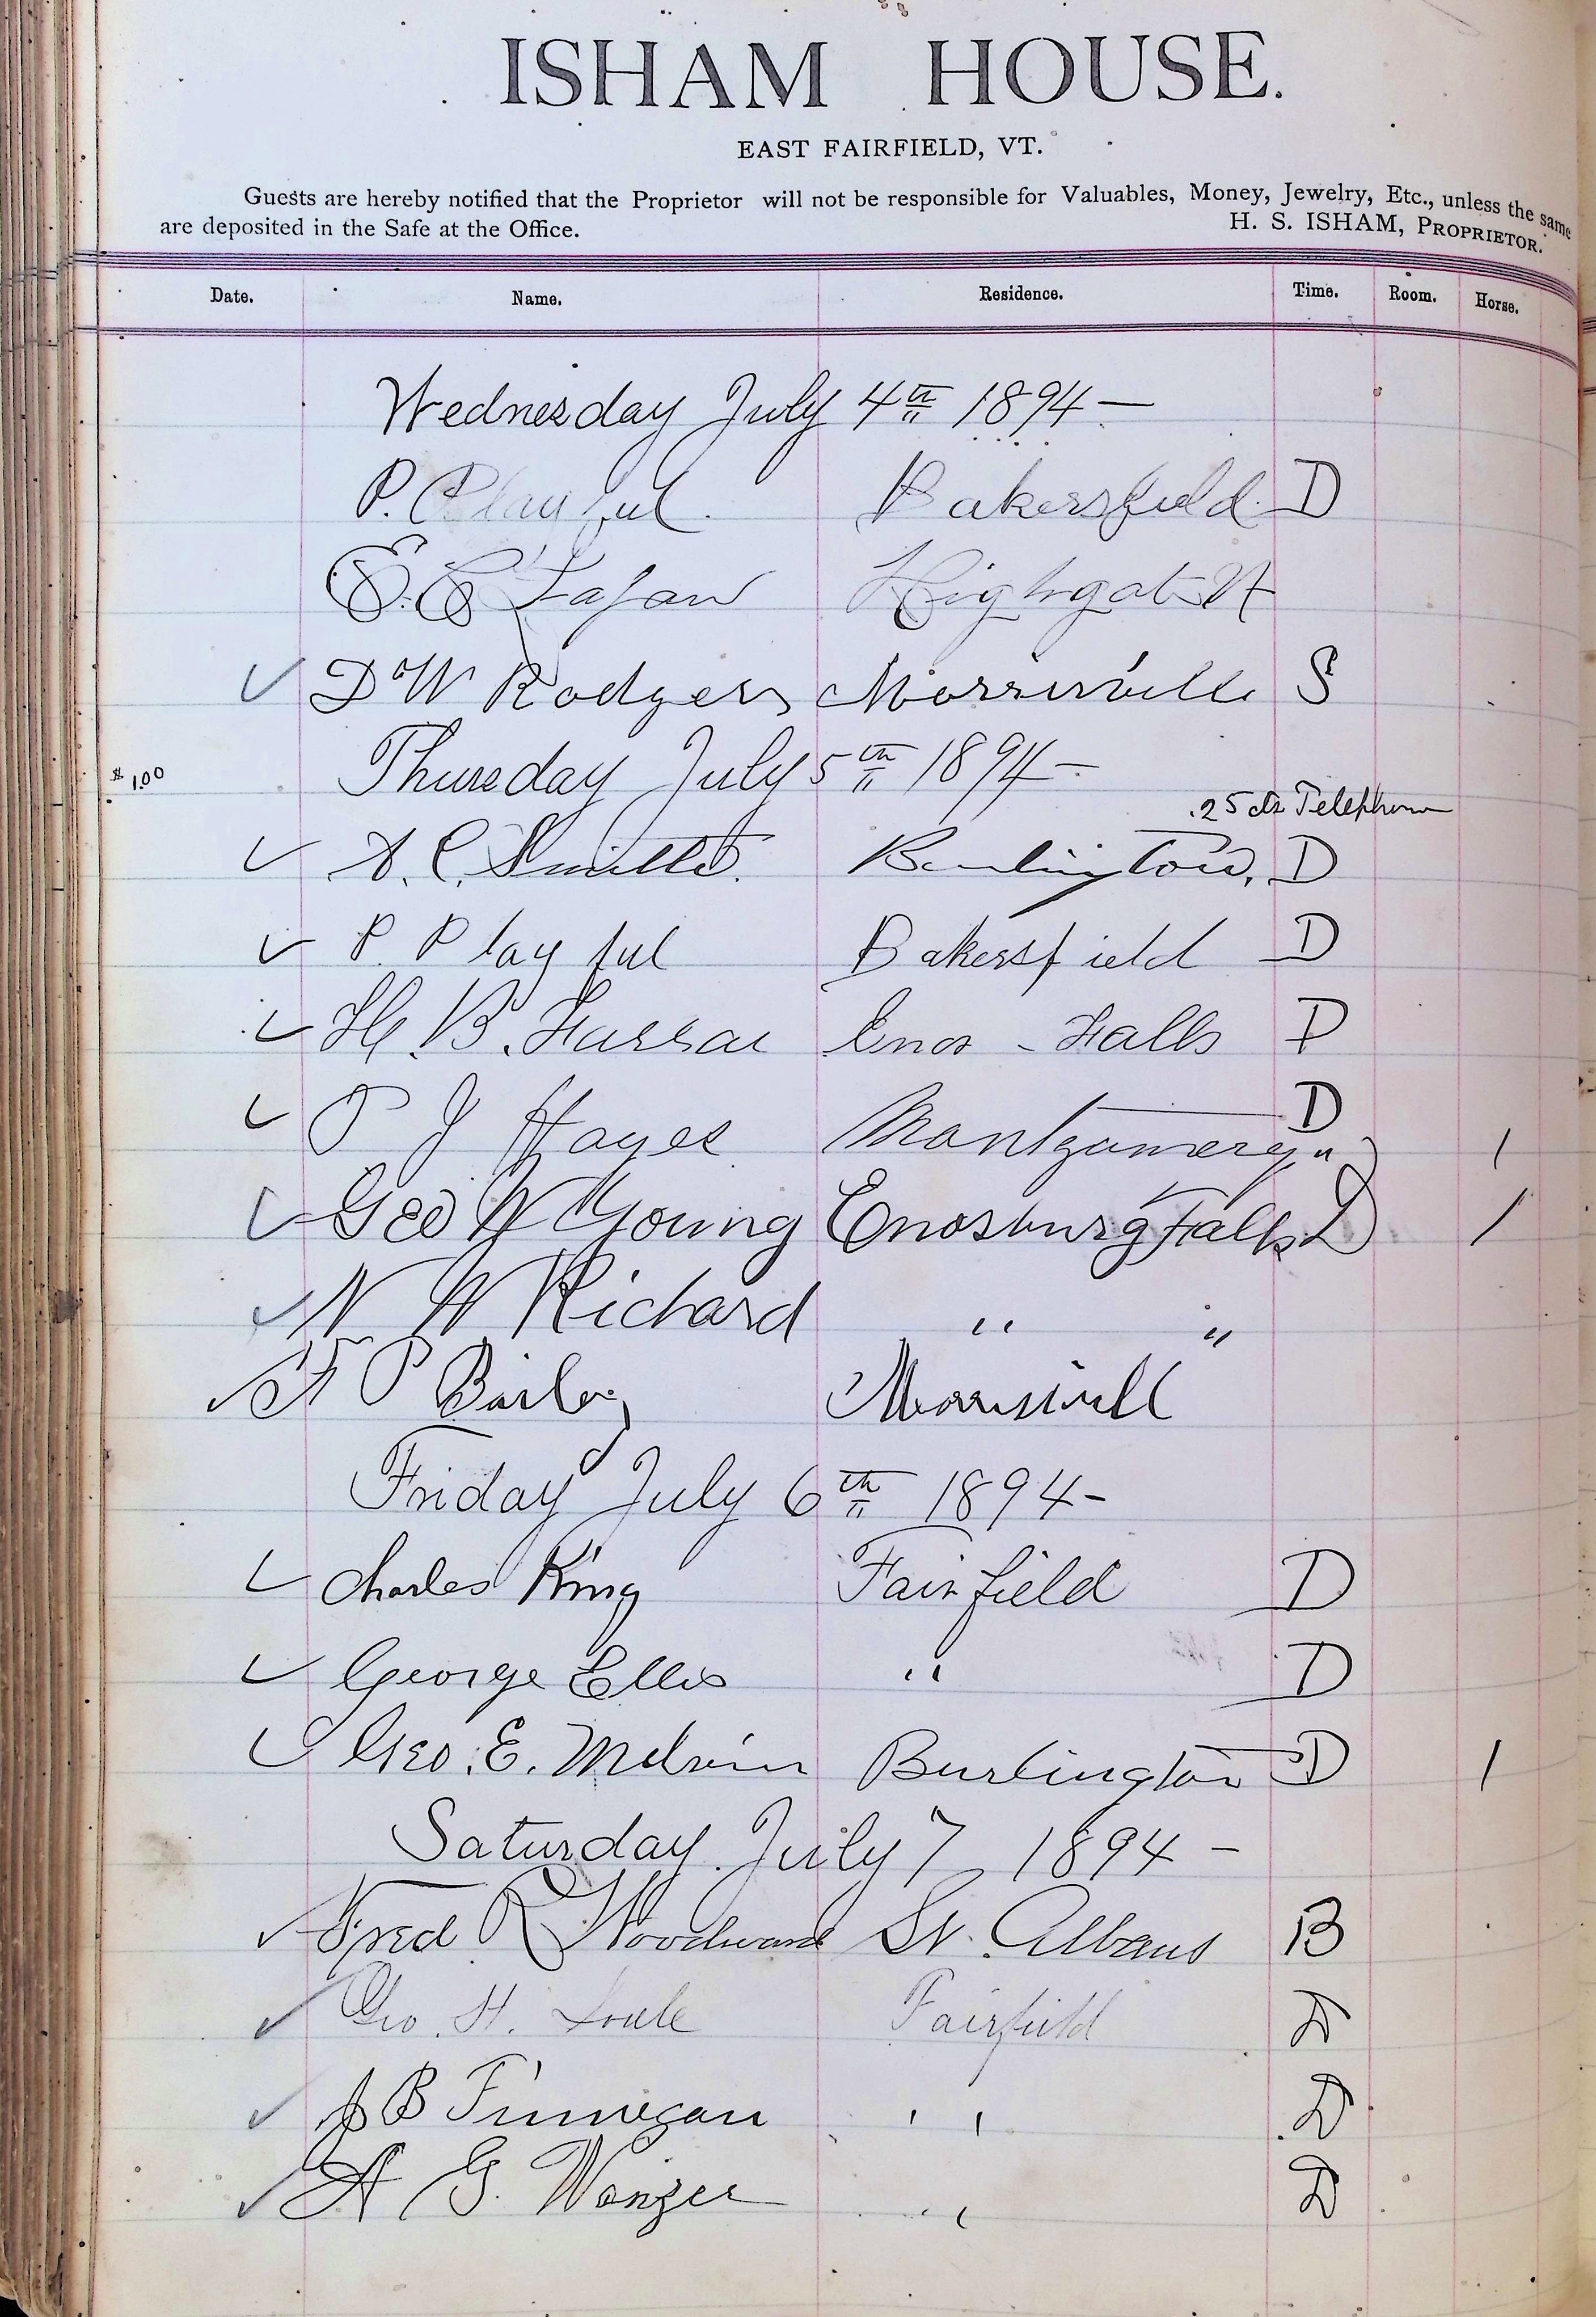 ISHAM HOUSE.
EAST FAIRFIELD, VT.
Guests are hereby notified that the Proprietor will not be responsible for Valuables, Money, Jewelry, Etc., unless the same
are deposited in the Safe at the Office. H. S. ISHAM, PROPRIETOR.
Date. Name. Residence. Time. Room. Horse.
Wednesday July 4th 1894—
P. Playful. Bakersfield. D
E. C. Lafaw Highgate Vt
✓ D W Rodgers Morrisville S
$1.00 Thursday July 5th 1894—
.25 cts Telephone
✓ A. C. Smith. Burlington, D
✓ P. Playful Bakersfield D
✓ H. B. Farrar Enos - Falls D
✓ P J Hayes Montgomery " D 1
✓ Geo W Young Enosburg Falls D 1
✓ N W Richard " "
✓ F P Bailey Morrisvill
Friday July 6th 1894-
✓ Charles King Fairfield D
✓ George Ellis " D
✓ Geo. E. Melvin Burlington D 1
Saturday. July 7 1894 -
✓ Fred R Woodward St. Albans B
✓ Geo. H. Soule Fairfield D
✓ J B Finnegan " D
✓ A G. Wanzer " D